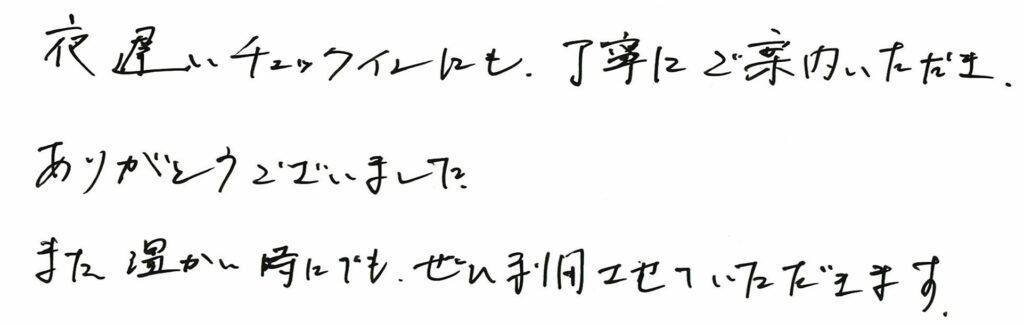 夜遅いチェックインにも、丁寧にご案内いただき、
ありがとうございました。
また温かい時にでも、ぜひ利用させていただきます。